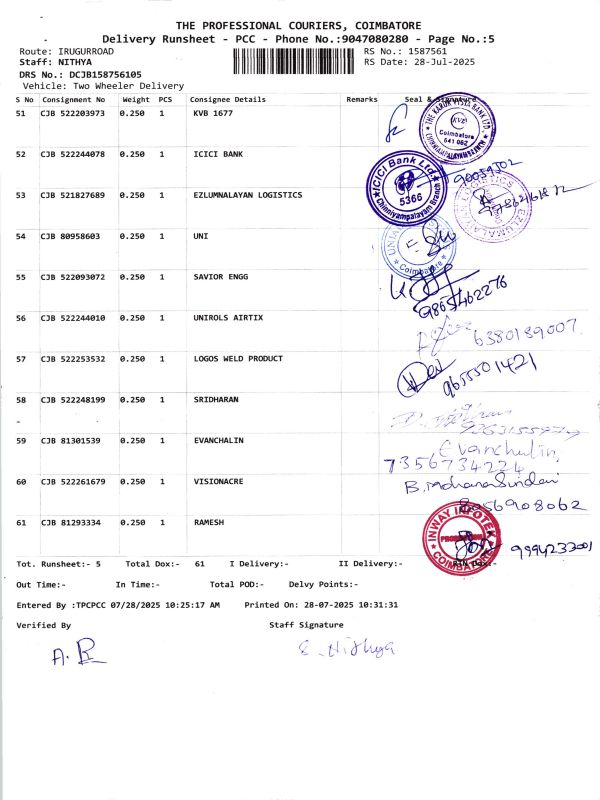 THE PROFESSIONAL COURIERS, COIMBATORE
Delivery Runsheet - PCC - Phone No.:9047080280 - Page No.:5
Route: IRUGURROAD
RS No.: 1587561
Staff: NITHYA
RS Date: 28-Jul-2025
DRS No.: DCJB158756105
Vehicle: Two Wheeler Delivery
S No Consignment No Weight PCS Consignee Details Remarks Seal & Signature
51 CJB 522203973 0.250 1 KVB 1677
THE KARUR VYSYA BANK LTD.
KVB
Coimbatore
641 062
CHINNIYAMPALAYAM BRANCH
52 CJB 522244078 0.250 1 ICICI BANK
ICICI Bank Ltd
5366
Chinniyampalayam Branch
53 CJB 521827689 0.250 1 EZLUMNALAYAN LOGISTICS
EZLUMALAYAN LOGISTICS
54 CJB 80958603 0.250 1 UNI
Coimbatore
55 CJB 522093072 0.250 1 SAVIOR ENGG
9865462276
56 CJB 522244010 0.250 1 UNIROLS AIRTIX
6380189007
57 CJB 522253532 0.250 1 LOGOS WELD PRODUCT
9655501421
58 CJB 522248199 0.250 1 SRIDHARAN
59 CJB 81301539 0.250 1 EVANCHALIN
Evanchalin
7356734224
60 CJB 522261679 0.250 1 VISIONACRE
B. Mohana Sundari
8056908062
61 CJB 81293334 0.250 1 RAMESH
INWAY INFOTEK
COIMBATORE
9994233001
Tot. Runsheet:- 5 Total Dox:- 61 I Delivery:- II Delivery:- RTN Dox:-
Out Time:- In Time:- Total POD:- Delvy Points:-
Entered By :TPCPCC 07/28/2025 10:25:17 AM Printed On: 28-07-2025 10:31:31
Verified By Staff Signature
A. R
S. Nithya